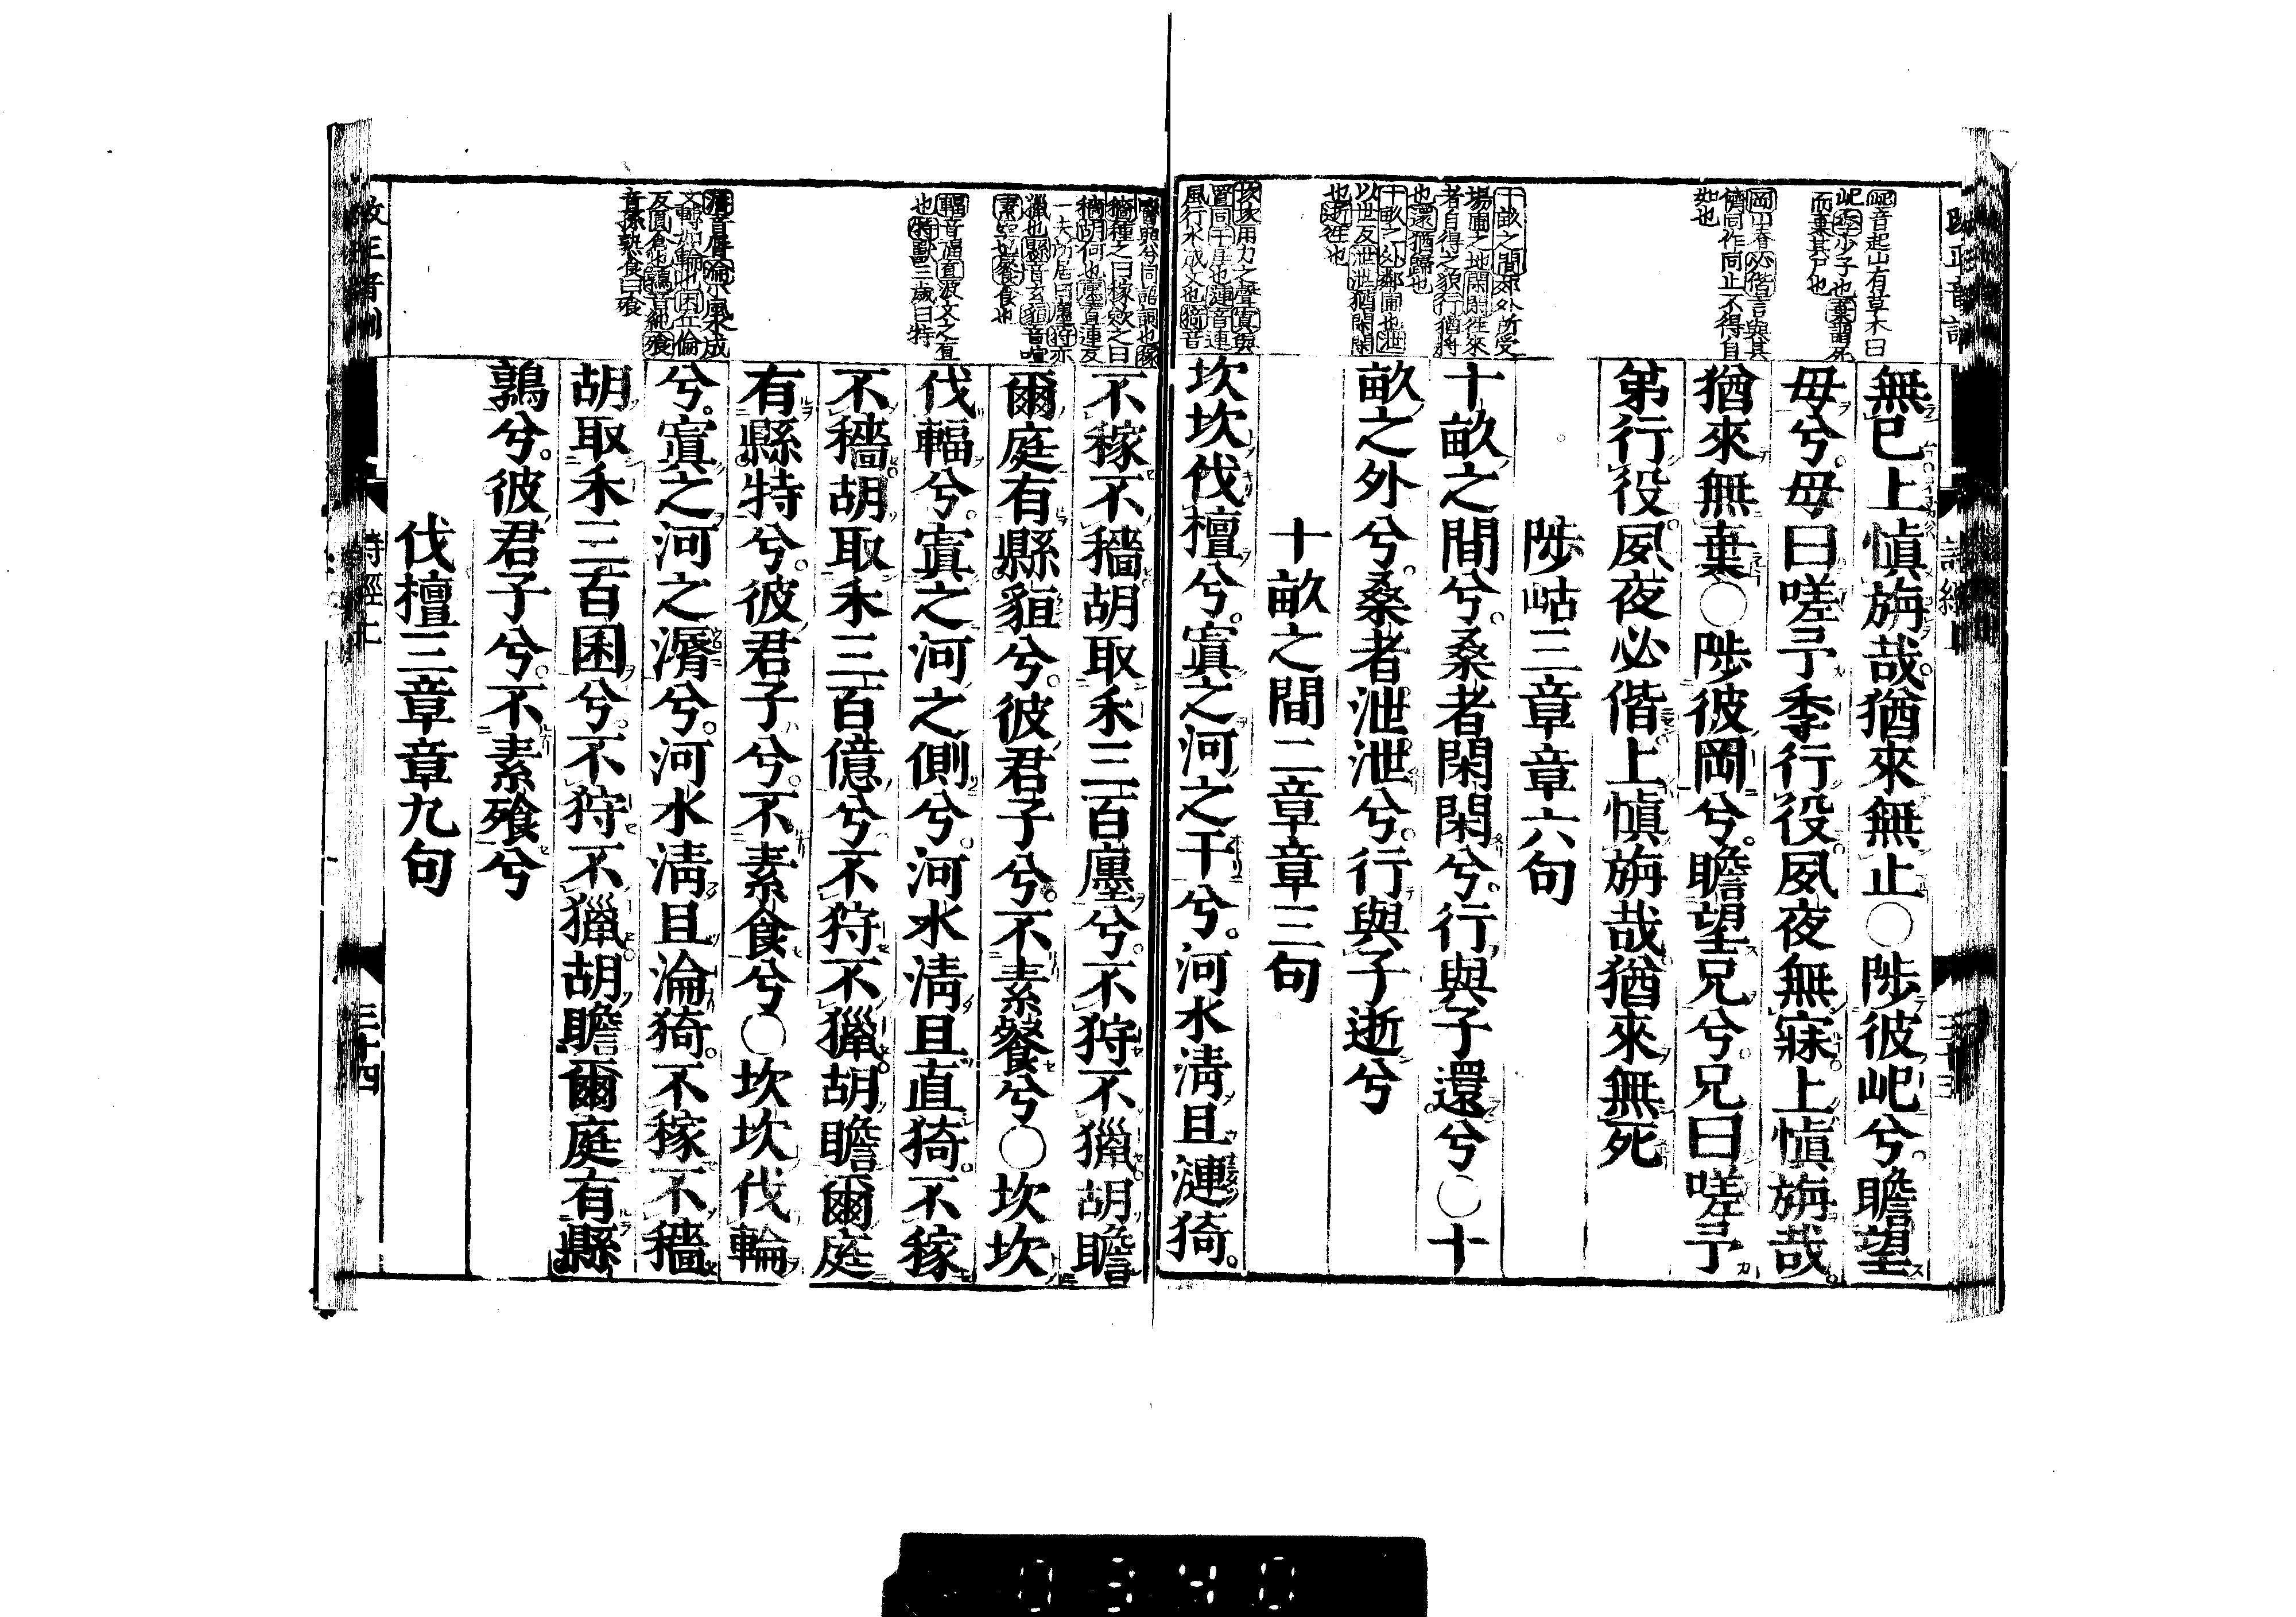 無已上慎旃哉猶來無止○陟彼屺兮瞻望
母兮母曰嗟予季行役夙夜無寐上慎旃哉
猶來無棄○陟彼岡兮瞻望兄兮兄曰嗟予
弟行役夙夜必偕上慎旃哉猶來無死
陟岵三章章六句
十畝之間兮桑者閑閑兮行與子還兮○十
畝之外兮桑者泄泄兮行與子逝兮
十畝之間二章章三句
坎坎伐檀兮寘之河之干兮河水淸且漣猗
屺音起山有草木曰
屺季少子也棄謂死
而棄其尸也
岡山脊必偕言與其
儕同作同止不得自
如也
十畝之間郊外所受
場圃之地閑閑徃來
者自得之貌行猶將
也還猶歸也
十畝之外鄰圃也泄
以世反泄泄猶閑閑
也逝徃也
坎坎用力之聲寘與
置同干厓也漣音連
風行水成文也猗音
不稼不穡胡取禾三百廛兮不狩不獵胡瞻
爾庭有縣貆兮彼君子兮不素餐兮○坎坎
伐輻兮寘之河之側兮河水淸且直猗不稼
不穡胡取禾三百億兮不狩不獵胡瞻爾庭
有縣特兮彼君子兮不素食兮○坎坎伐輪
兮寘之河之漘兮河水淸且淪猗不稼不穡
胡取禾三百囷兮不狩不獵胡瞻爾庭有縣
鶉兮彼君子兮不素飧兮
伐檀三章章九句
穡種之曰稼斂之曰
穡胡何也廛直連反
一夫所居曰廛狩亦
獵也縣音玄貆音喧
素空也餐食也
輻音福直波文之直
也特獸三歲曰特
漘音脣淪小風水成
文轉如輪也囷丘倫
反圓倉也鶉音純飧
音孫熟食曰飧
詩經上
三十四
0340